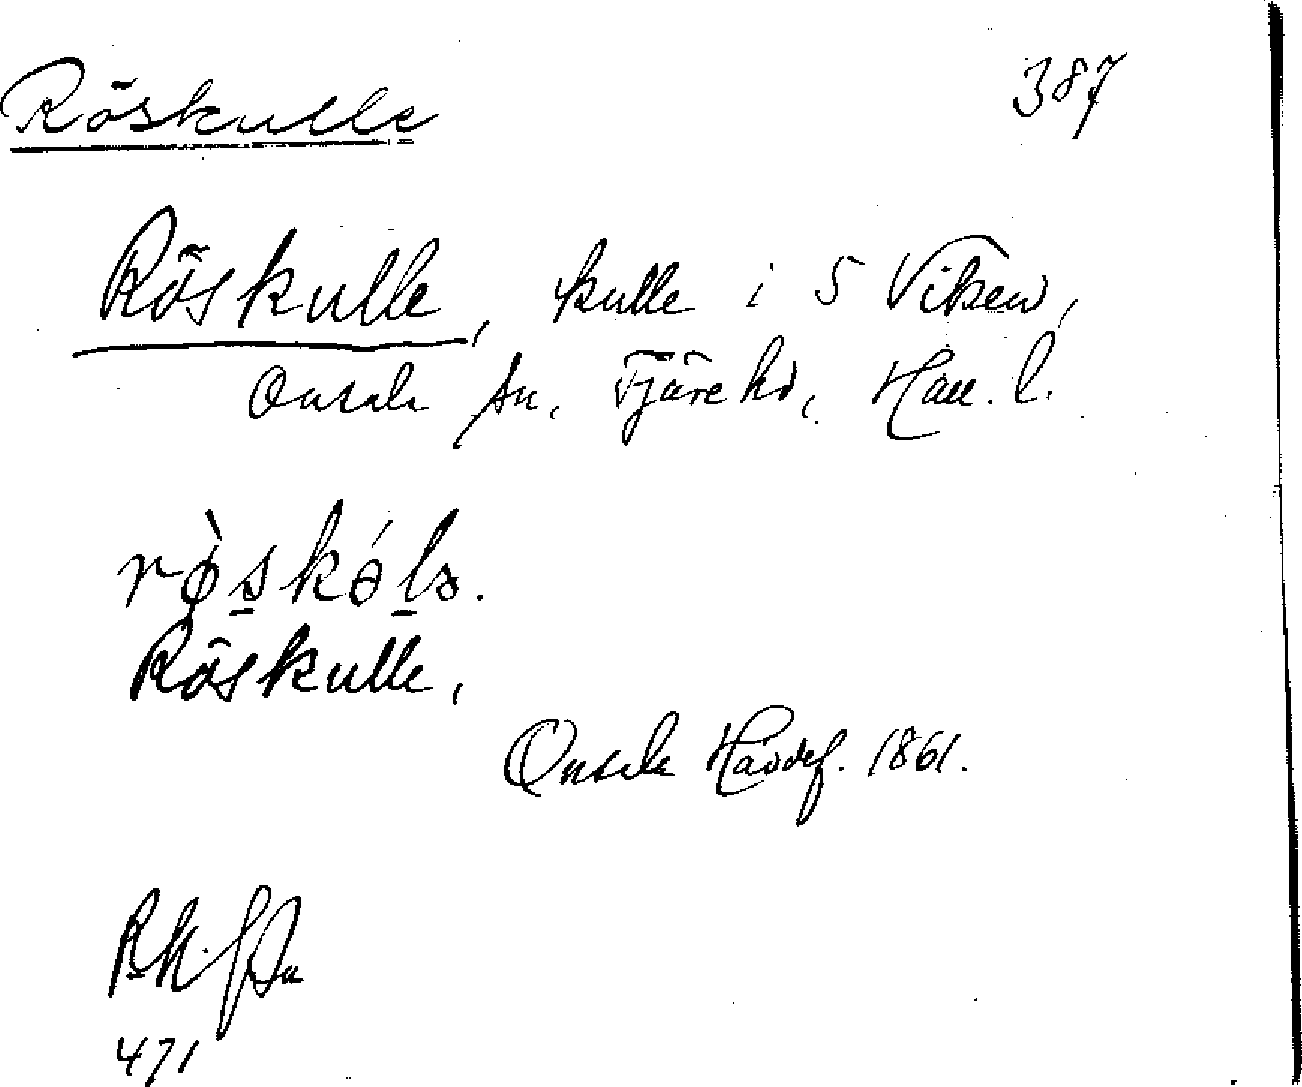 Röskulle 387
Röskulle, kulle i S Viken,
Onsala sn, Fjäre hd, Hall. l.
rø̀skólə.
Röskulle,
Onsala 1861.
471